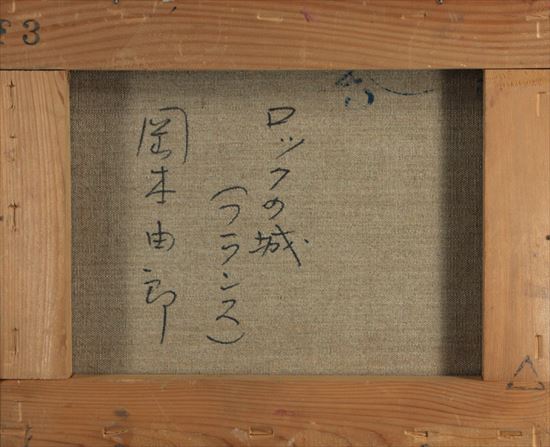 F3
ロックの城
(フランス)
岡本由郎